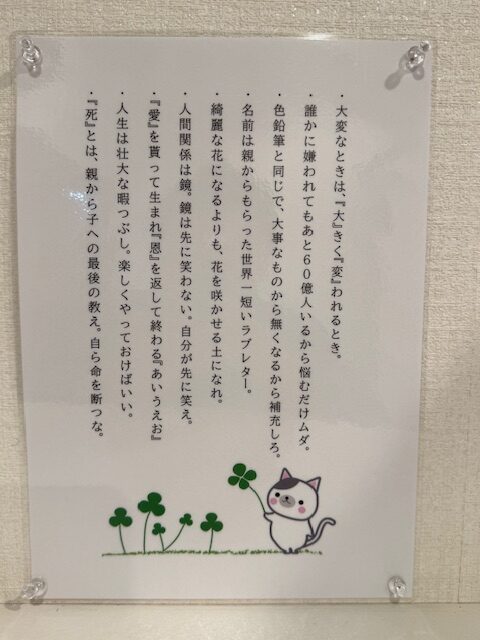 ・大変なときは、『大』きく『変』われるとき。
・誰かに嫌われてもあと60億人いるから悩むだけムダ。
・色鉛筆と同じで、大事なものから無くなるから補充しろ。
・名前は親からもらった世界一短いラブレター。
・綺麗な花になるよりも、花を咲かせる土になれ。
・人間関係は鏡。鏡は先に笑わない。自分が先に笑え。
・『愛』を貰って生まれ『恩』を返して終わる『あいうえお』
・人生は壮大な暇つぶし。楽しくやっておけばいい。
・『死』とは、親から子への最後の教え。自ら命を断つな。